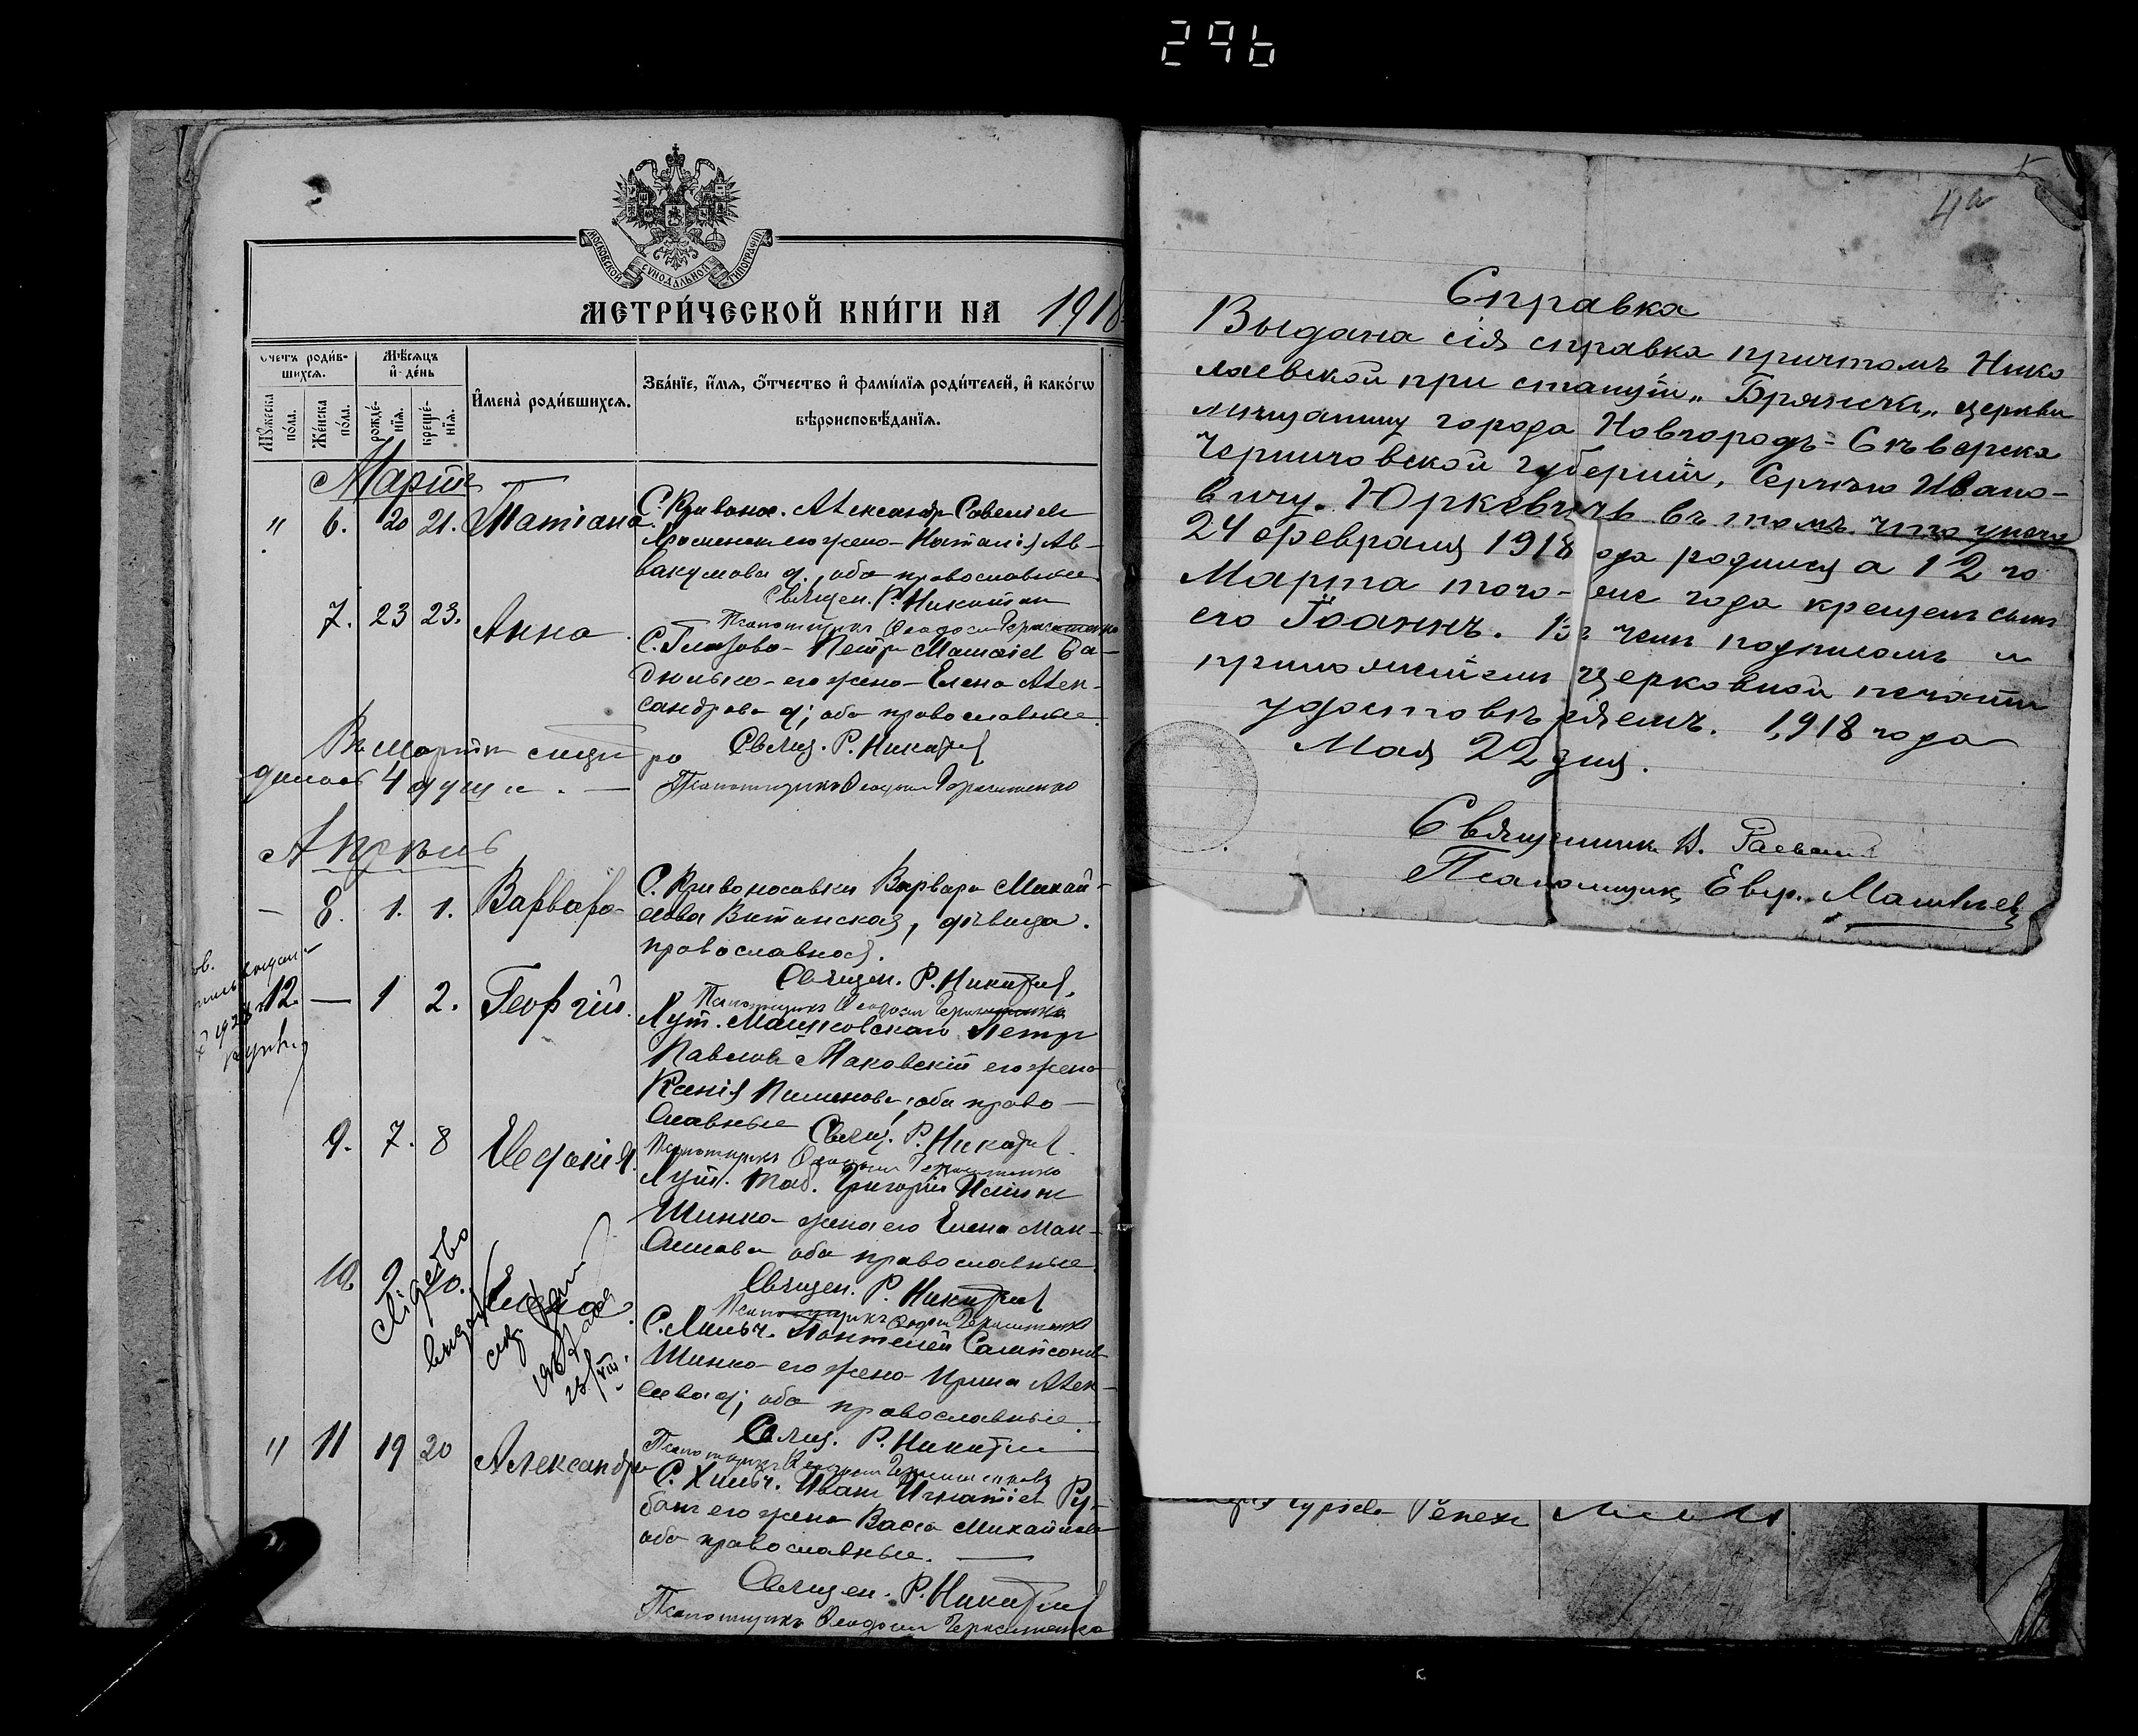 296
МОСКОВСКОЙ СѴНОДАЛЬНОЙ ТИПОГРАФІИ
МЕТРИ́ЧЕСКОЙ КНИ́ГИ НА 1918
Счетъ роди́в-
шихся.
Мѣсяцъ
и́ де́нь
Мꙋ́жеска
по́ла.
Же́нска
по́ла.
рожде́-
нїя.
креще́-
нїя.
И҆мена̀ роди́вшихся.
Зва́нїе, и҆́мя, о҆́тчество и҆ фами́лїя роди́телей, и҆ како́гѡ
вѣроисповѣ́данїя.
Мартъ
" 6. 20 21. Татіана
Александр Савеліев
его жена Наталія Ав-
вакумова, оба православные.
Священ. Р. Никитин
7. 23 23. Анна.
Псаломщикъ Ѳеодосий Герасименко
Петр Матвіев Ба-
его жена Елена Алек-
сандрова, оба православные.
Свящ. Р. Никитин
Псаломщикъ Ѳеодосий Герасименко
4 души.
Апрѣль
— 8. 1. 1. Варвара
С. Кривоносовки Варвара Михай-
лова Витинская, дѣвица.
православная.
Священ. Р. Никитин
Псаломщикъ Ѳеодосий Герасименко
12. — 1 2. Георгій.
Хут. Машковского Петр
Павлов Маковскій его жена
Ксенія Пименова, оба право-
славные Свящ. Р. Никитин
9. 7. 8 Евдокія.
Псаломщикъ Ѳеодосий Герасименко
Хут. Григорій
Шинко жена его Елена Мак-
симова оба православные
Священ. Р. Никитин
10. 9 10. Елена.
Псаломщикъ Ѳеодосий Герасименко
С. Хильч. Пантелей Сампсонов
Шинко его жена Ирина Алек-
сеева; оба православные.
Свящ. Р. Никитин
" 11 19 20 Александра
Псаломщикъ Ѳеодосий Герасименко
С. Хильч. Иван Игнатіев Ру-
бан его жена Васса Михайлова
оба православные.
Священ. Р. Никитин
Псаломщикъ Ѳеодосий Герасименко
Свідоцтво
видано
4а
Справка
Выдана сія справка причтомъ Нико
лаевской при станціи „Брянскъ„ церкви
мещанину города Новгородъ-Сѣверска
Черниговской губерніи, Сергѣю Ивано-
вичу Юркевичъ въ томъ, что у него
24 февраля 1918 года родился а 12 го
Марта того-же года крещенъ сынъ
его Іоаннъ. Въ чемъ подписомъ и
приложеніемъ церковной печати
удостовѣряемъ. 1918 года
Мая 22 дня.
Священникъ В. Раевскій
Псаломщик Евгр. Матвѣев